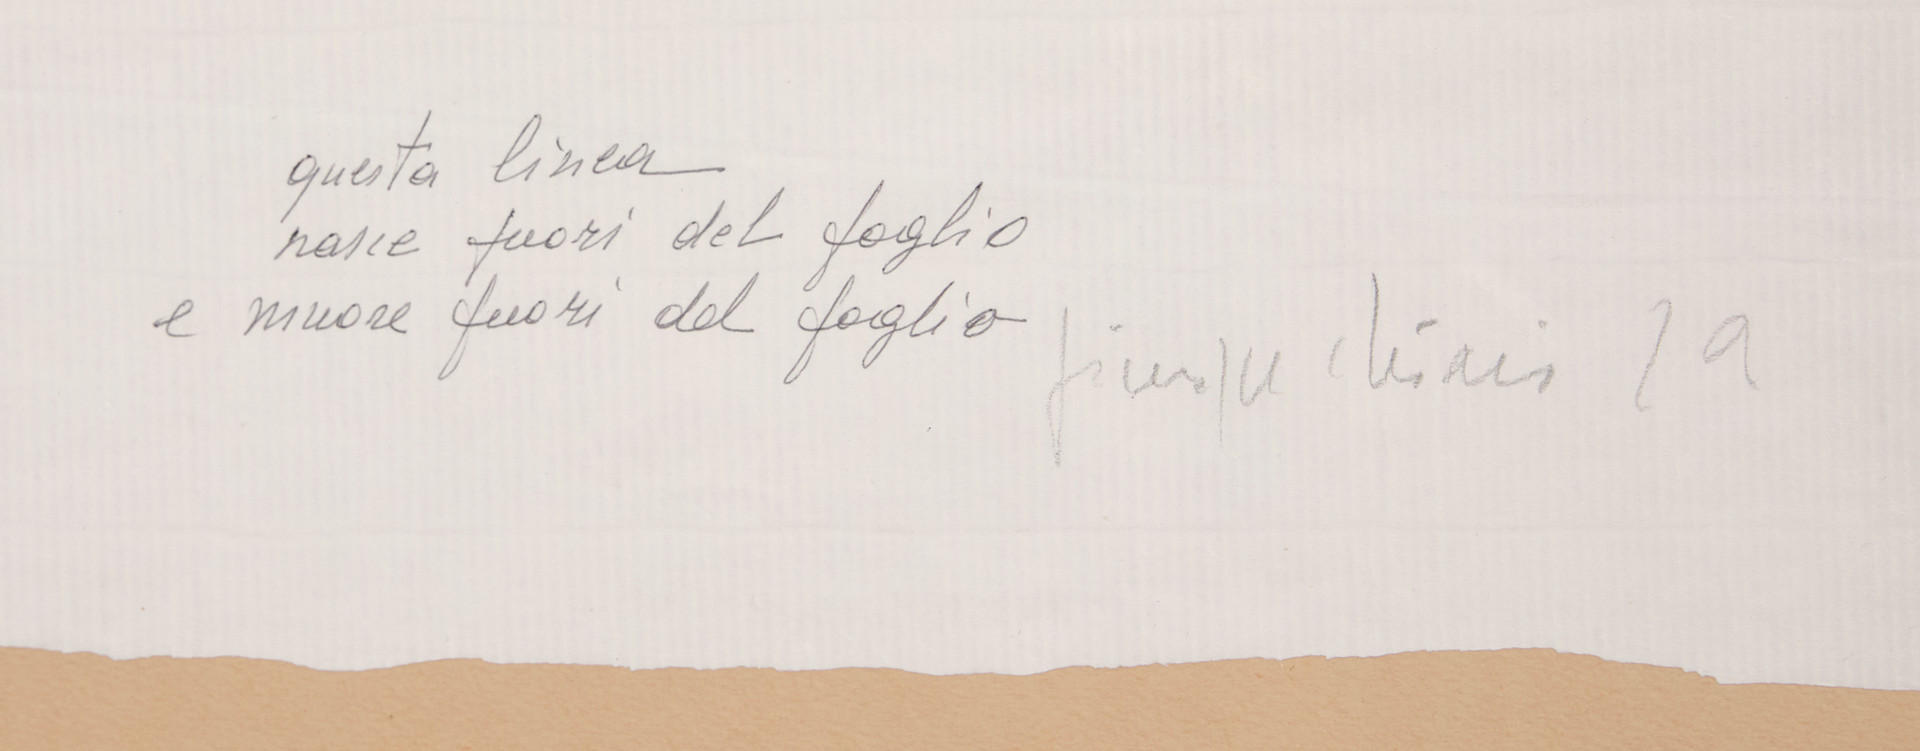 questa linea
nasce fuori del foglio
e muore fuori del foglio
giuseppe chiari